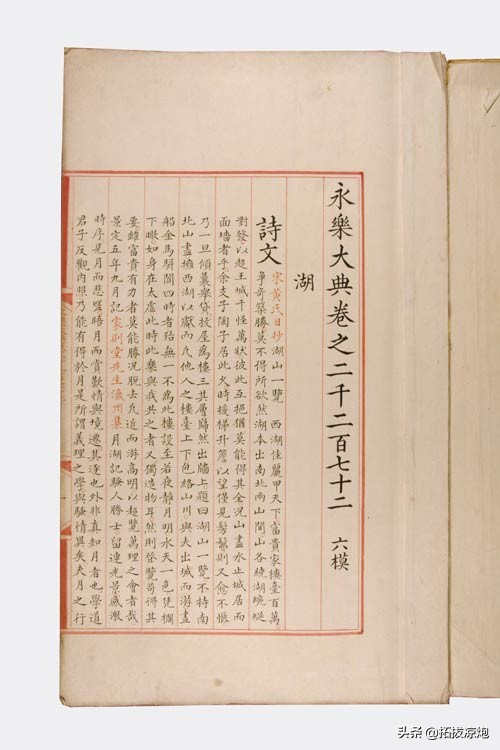 永樂大典卷之二千二百七十二 六模
湖
詩文 宋黃氏日抄湖山一覽 西湖佳麗甲天下富貴家樓臺百萬
爭奇築勝莫不得所欲然湖本出南北兩山間山各繞湖蜿蜒
對發以趨王城千怪萬狀彼此互挹猶莫能得其全況山盡水止城居而
面墻者乎余支子陶子居此火時接梯升簷以望僅見髣髴則又歉不愜
乃一旦傾囊舉貸投屋為樓三其層巋然出牆上題曰湖山一覽不特南
北山盡擁西湖以獻而凡他人之樓臺上下包絡山川與夫出城而游畫
船金馬駢闐四時者殆無一不為此樓設至若夜靜月明水天一色凭欄
下瞰如身在太虛此時此樂與我共之者又獨造物耳然則登覽苟得其
要雖富貴有力者莫能勝況脫去凡近而游高明以超覽萬理之會者哉
景定五年九月記 家則堂先生瀛州集 月湖記騷人勝士留連光景感激
時序見月而悲嗟晤月而賞歎情與境遷其逐也外非真知月者也學道
君子反觀內照乃能有得於月是所謂義理之學與騷情異矣夫月之行
头条 @拓拔凉炮